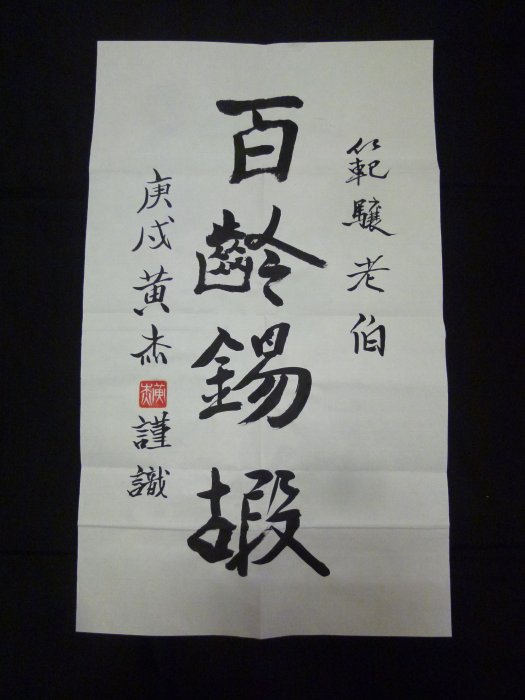 範驤老伯
百齡錫嘏
庚戌黃杰
黃杰
謹識